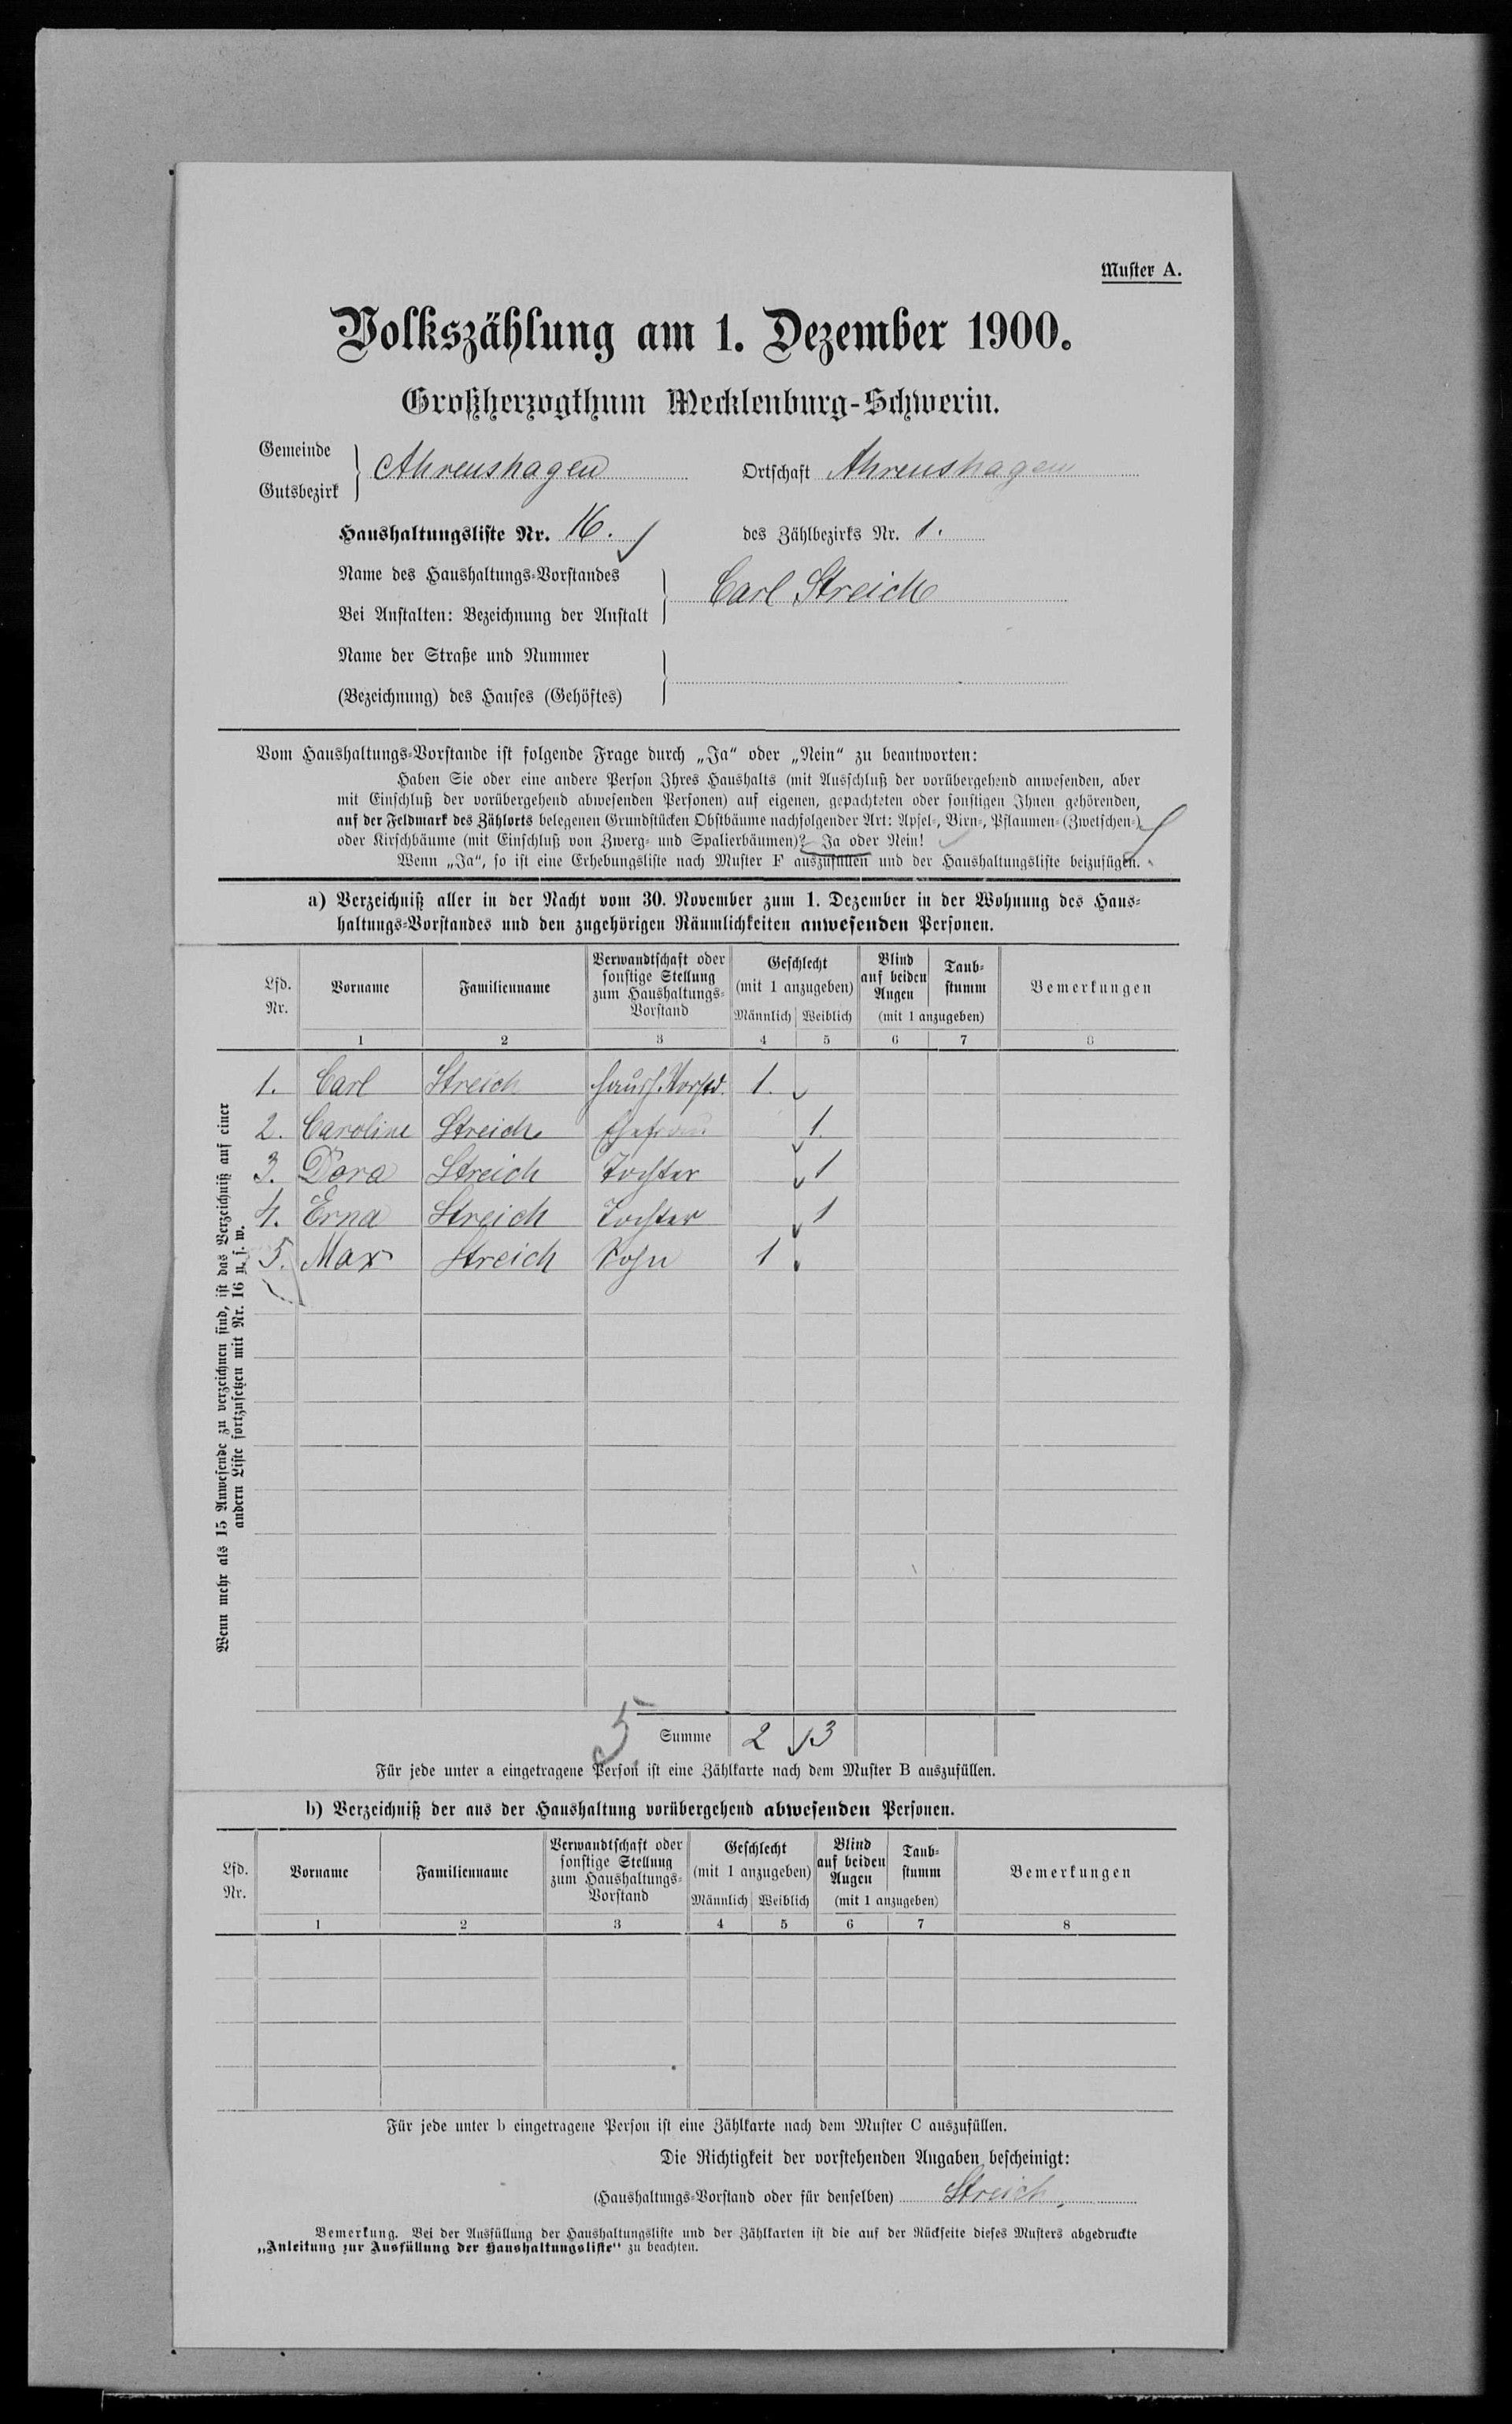 Muster A.
Volkszählung am 1. Dezember 1900.
Großherzogthum Mecklenburg-Schwerin.
Gemeinde
Gutsbezirk } Ahrenshagen Ortschaft Ahrenshagen
Haushaltungsliste Nr. 16. des Zählbezirks Nr. 1.
Name des Haushaltungs-Vorstandes
Bei Anstalten: Bezeichnung der Anstalt } Carl Streich
Name der Straße und Nummer
(Bezeichnung) des Hauses (Gehöftes) }
Vom Haushaltungs-Vorstande ist folgende Frage durch „Ja“ oder „Nein“ zu beantworten:
Haben Sie oder eine andere Person Ihres Haushalts (mit Ausschluß der vorübergehend anwesenden, aber
mit Einschluß der vorübergehend abwesenden Personen) auf eigenen, gepachteten oder sonstigen Ihnen gehörenden,
auf der Feldmark des Zählorts belegenen Grundstücken Obstbäume nachfolgender Art: Apfel-, Birn-, Pflaumen- (Zwetschen-)
oder Kirschbäume (mit Einschluß von Zwerg- und Spalierbäumen)? Ja oder Nein!
Wenn „Ja“, so ist eine Erhebungsliste nach Muster F auszufüllen und der Haushaltungsliste beizufügen.
a) Verzeichniß aller in der Nacht vom 30. November zum 1. Dezember in der Wohnung des Haus-
haltungs-Vorstandes und den zugehörigen Räumlichkeiten anwesenden Personen.
Lfd. Nr. Vorname Familienname Verwandtschaft oder sonstige Stellung zum Haushaltungs-Vorstand Geschlecht (mit 1 anzugeben) Männlich Weiblich Blind auf beiden Augen Taub-stumm (mit 1 anzugeben) Bemerkungen
1 2 3 4 5 6 7 8
1. Carl Streich Haush. Vorstd. 1.
2. Caroline Streich Ehefrau 1.
3. Dora Streich Tochter 1
4. Erna Streich Tochter 1
5. Max Streich Sohn 1
Wenn mehr als 15 Anwesende zu verzeichnen sind, ist das Verzeichniß auf einer
andern Liste fortzusetzen mit Nr. 16 u. s. w.
5 Summe 2 3
Für jede unter a eingetragene Person ist eine Zählkarte nach dem Muster B auszufüllen.
b) Verzeichniß der aus der Haushaltung vorübergehend abwesenden Personen.
Lfd. Nr. Vorname Familienname Verwandtschaft oder sonstige Stellung zum Haushaltungs-Vorstand Geschlecht (mit 1 anzugeben) Männlich Weiblich Blind auf beiden Augen Taub-stumm (mit 1 anzugeben) Bemerkungen
1 2 3 4 5 6 7 8
Für jede unter b eingetragene Person ist eine Zählkarte nach dem Muster C auszufüllen.
Die Richtigkeit der vorstehenden Angaben bescheinigt:
(Haushaltungs-Vorstand oder für denselben) Streich.
Bemerkung. Bei der Ausfüllung der Haushaltungsliste und der Zählkarten ist die auf der Rückseite dieses Musters abgedruckte
„Anleitung zur Ausfüllung der Haushaltungsliste“ zu beachten.